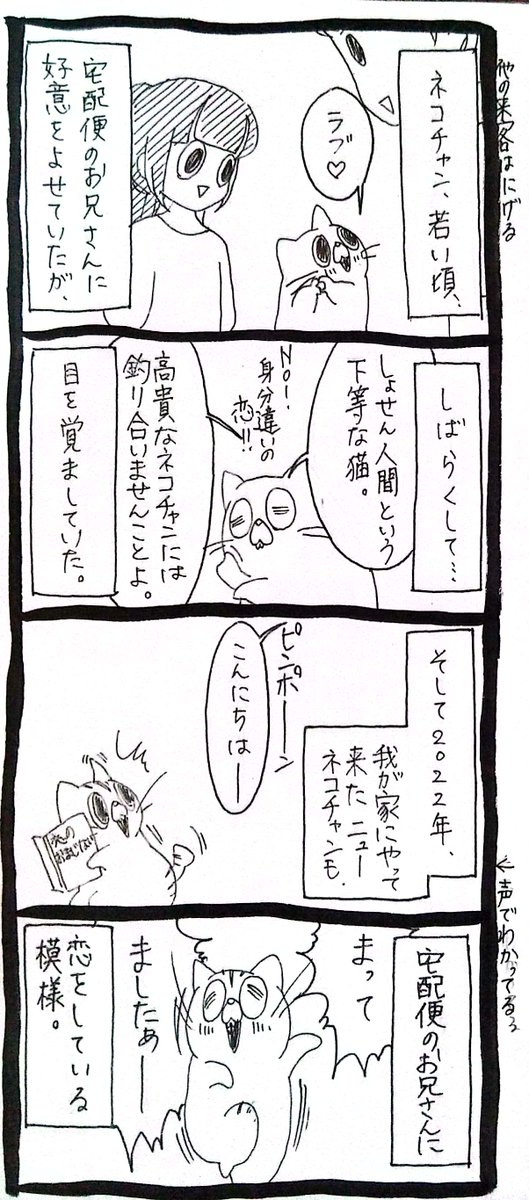 他の来客はにげる
ネコチャン、若い頃、
ラブ♡
宅配便のお兄さんに
好意をよせていたが、
しばらくして…
しょせん人間という
下等な猫。
No!!
身分違いの
恋!!
高貴なネコチャンには
釣り合いませんことよ。
目を覚ましていた。
そして2022年、
我が家にやって
来たニュー
ネコチャンも、
ピンポーーン
こんにちはー
恋の
おまじない
←声でわかってるっ
宅配便のお兄さんに
まって
ましたぁー
恋をしている
模様。